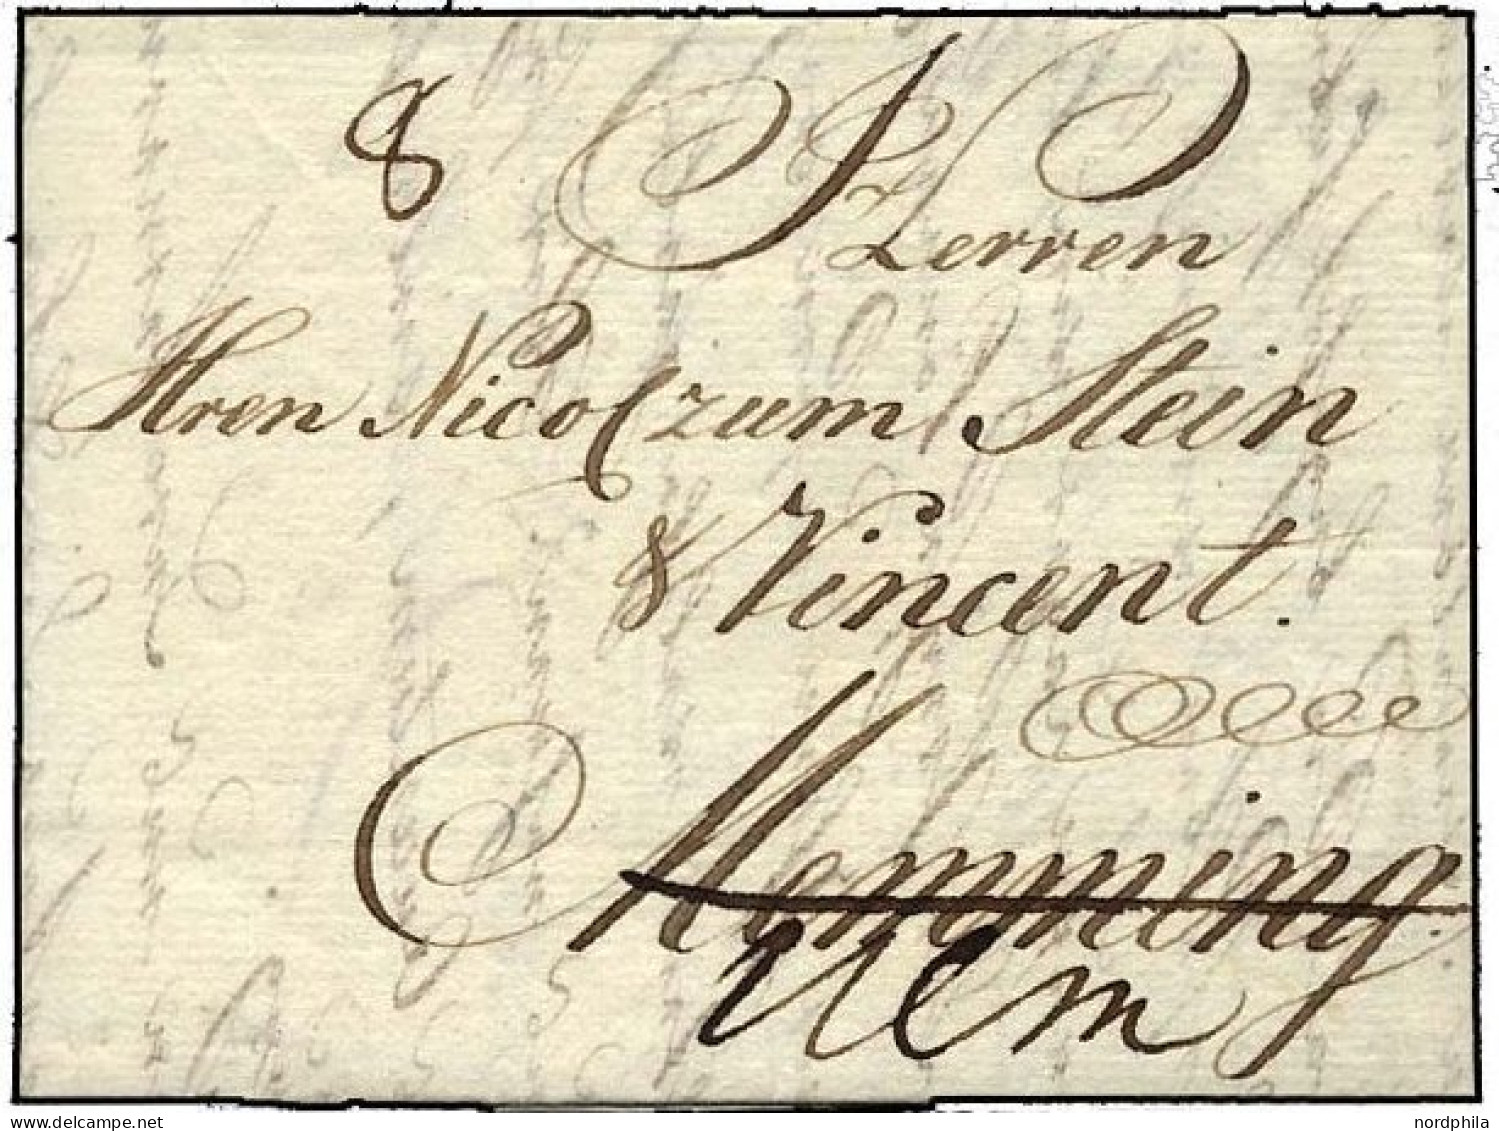 8
Herren
Hren Nicol zum Stein
& Vincent.
Memming.
Ulm
www.delcampe.net
nordphila